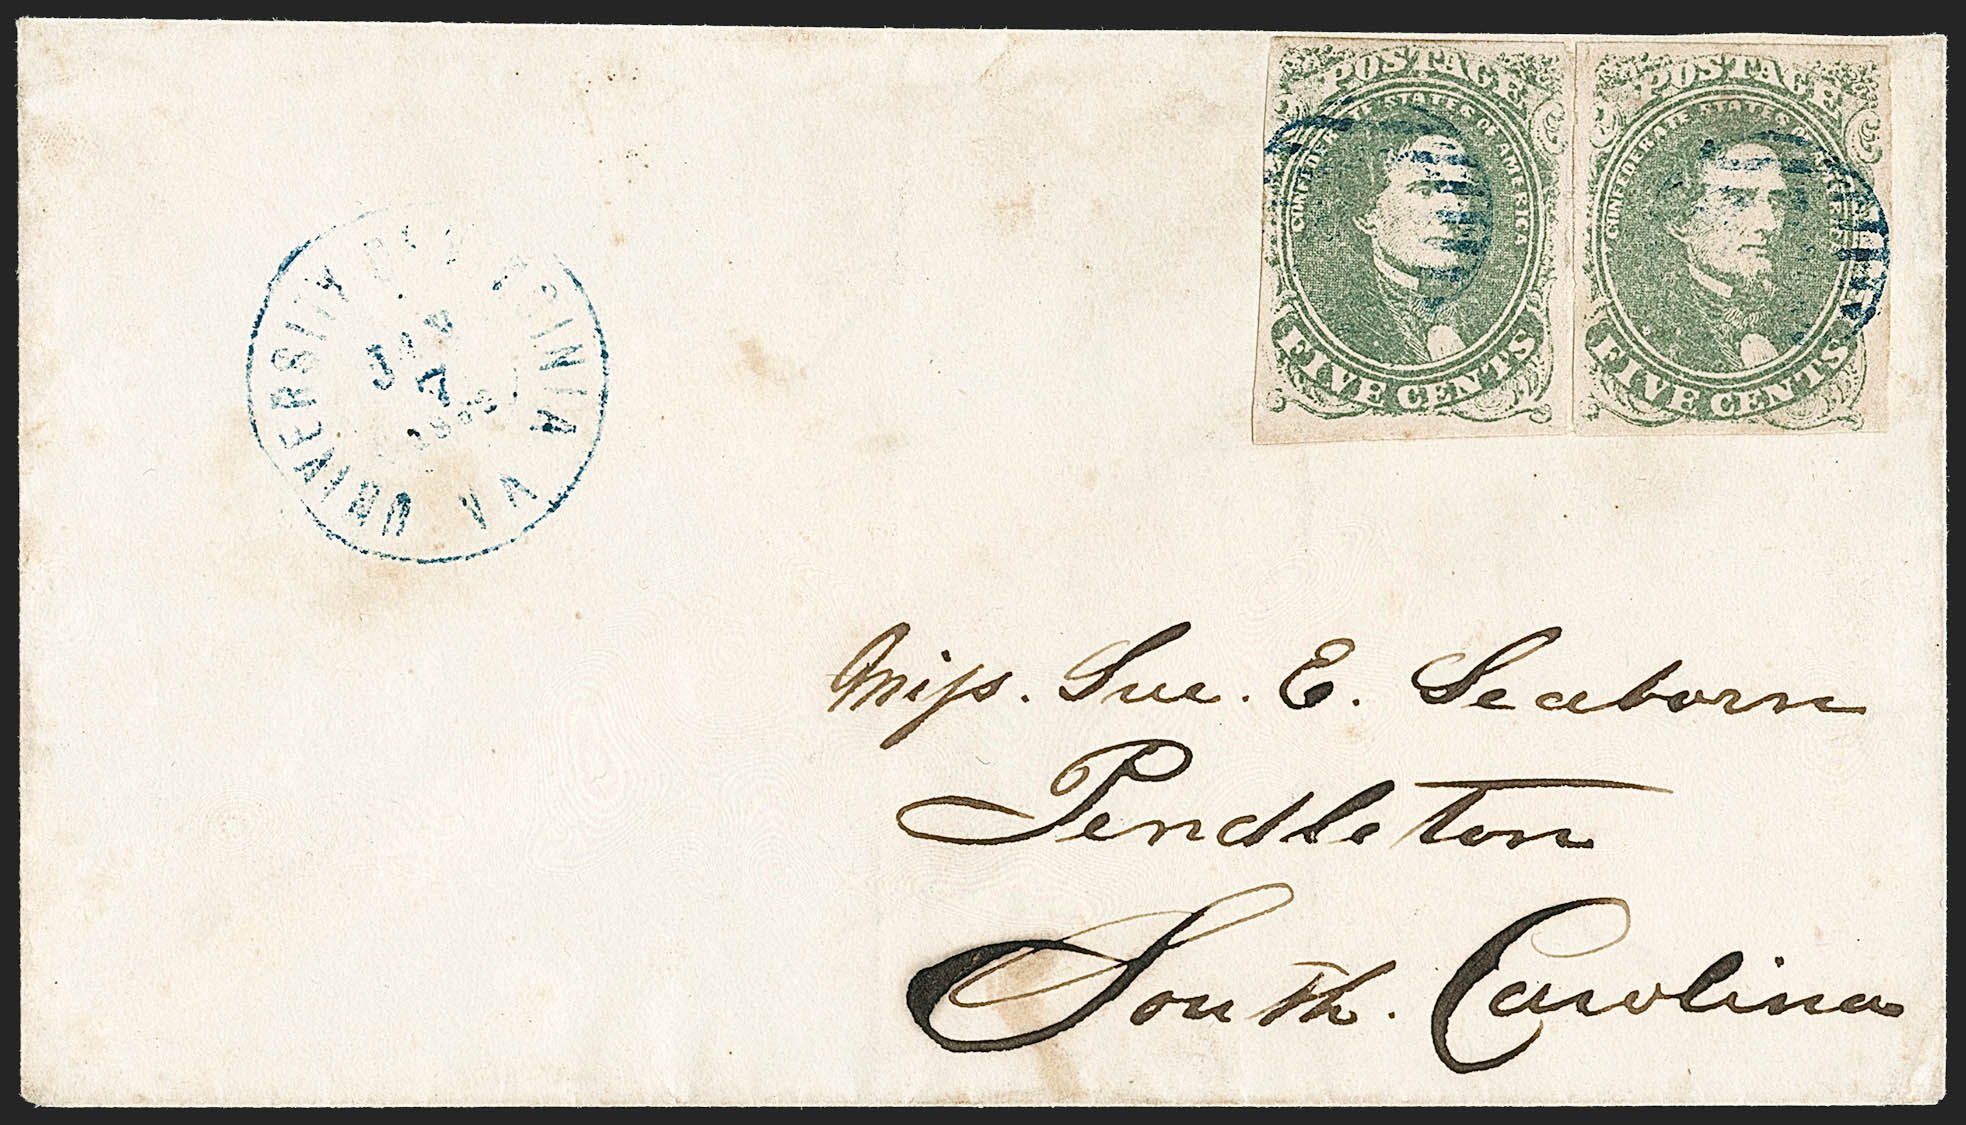 POSTAGE
CONFEDERATE STATES OF AMERICA
FIVE CENTS
POSTAGE
CONFEDERATE STATES OF AMERICA
FIVE CENTS
UNIVERSITY OF VIRGINIA VA
7
Miss. Sue. E. Seaborn
Pendleton
South. Carolina